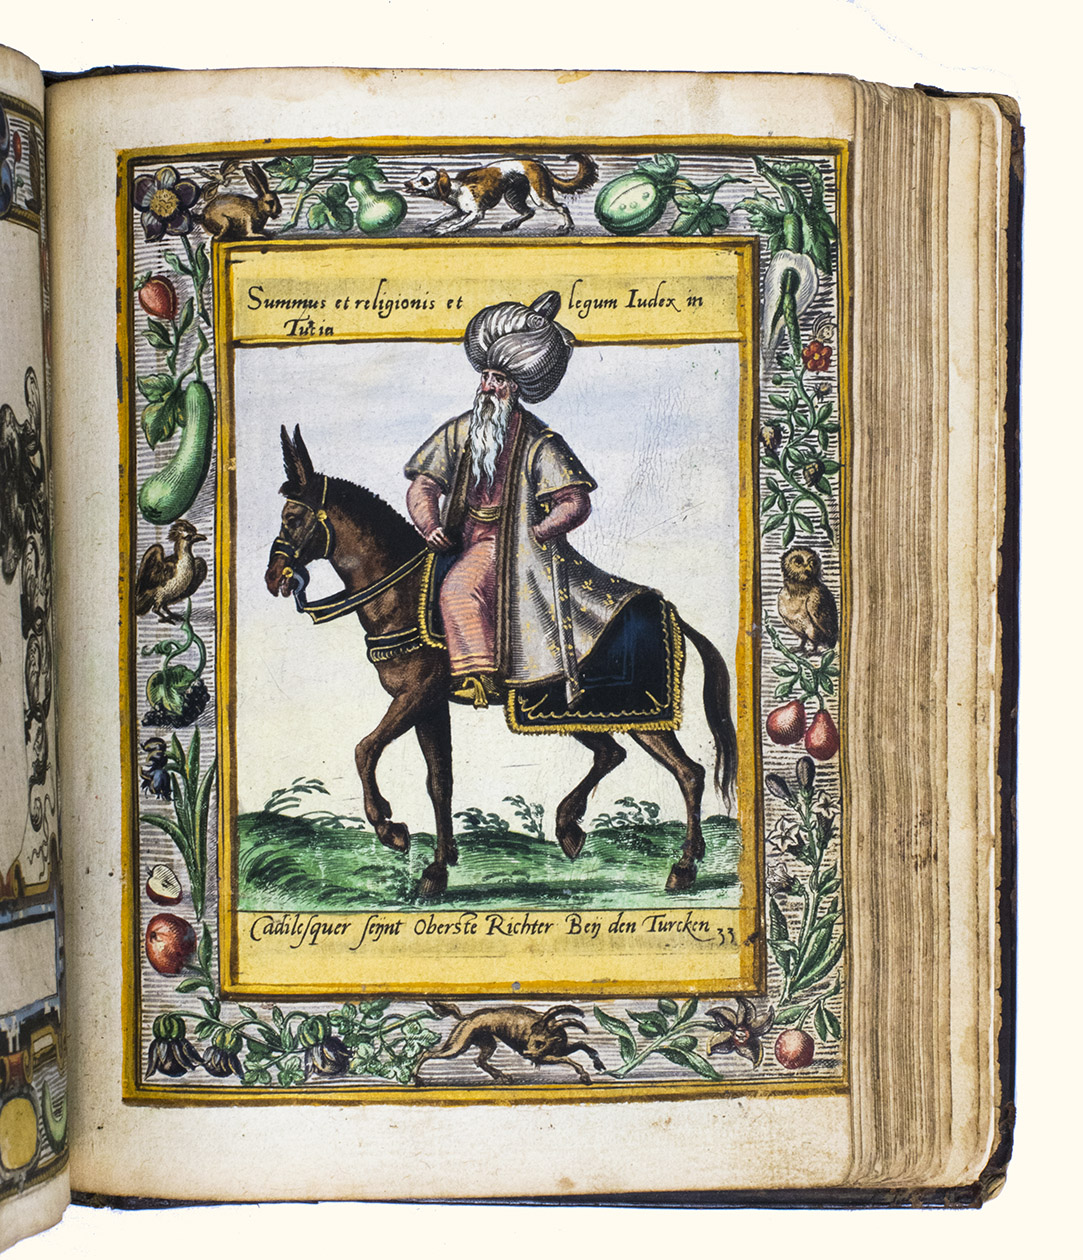 Summus et religionis et legum Iudex in
Tutia
Cadilesquer seijnt Oberste Richter Beij den Turcken
33